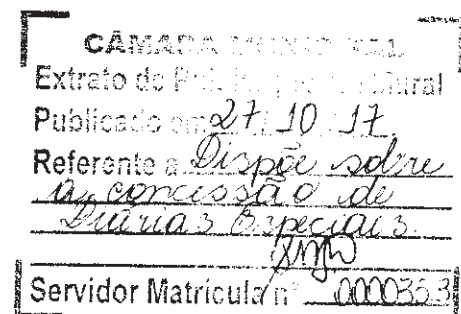 CÂMARA MUNICIPAL
Extrato de Mural
Publicado em 27 10 17
Referente a Dispõe sobre
a concessão de
Diárias Especiais.
Servidor Matrícula nº 0000353